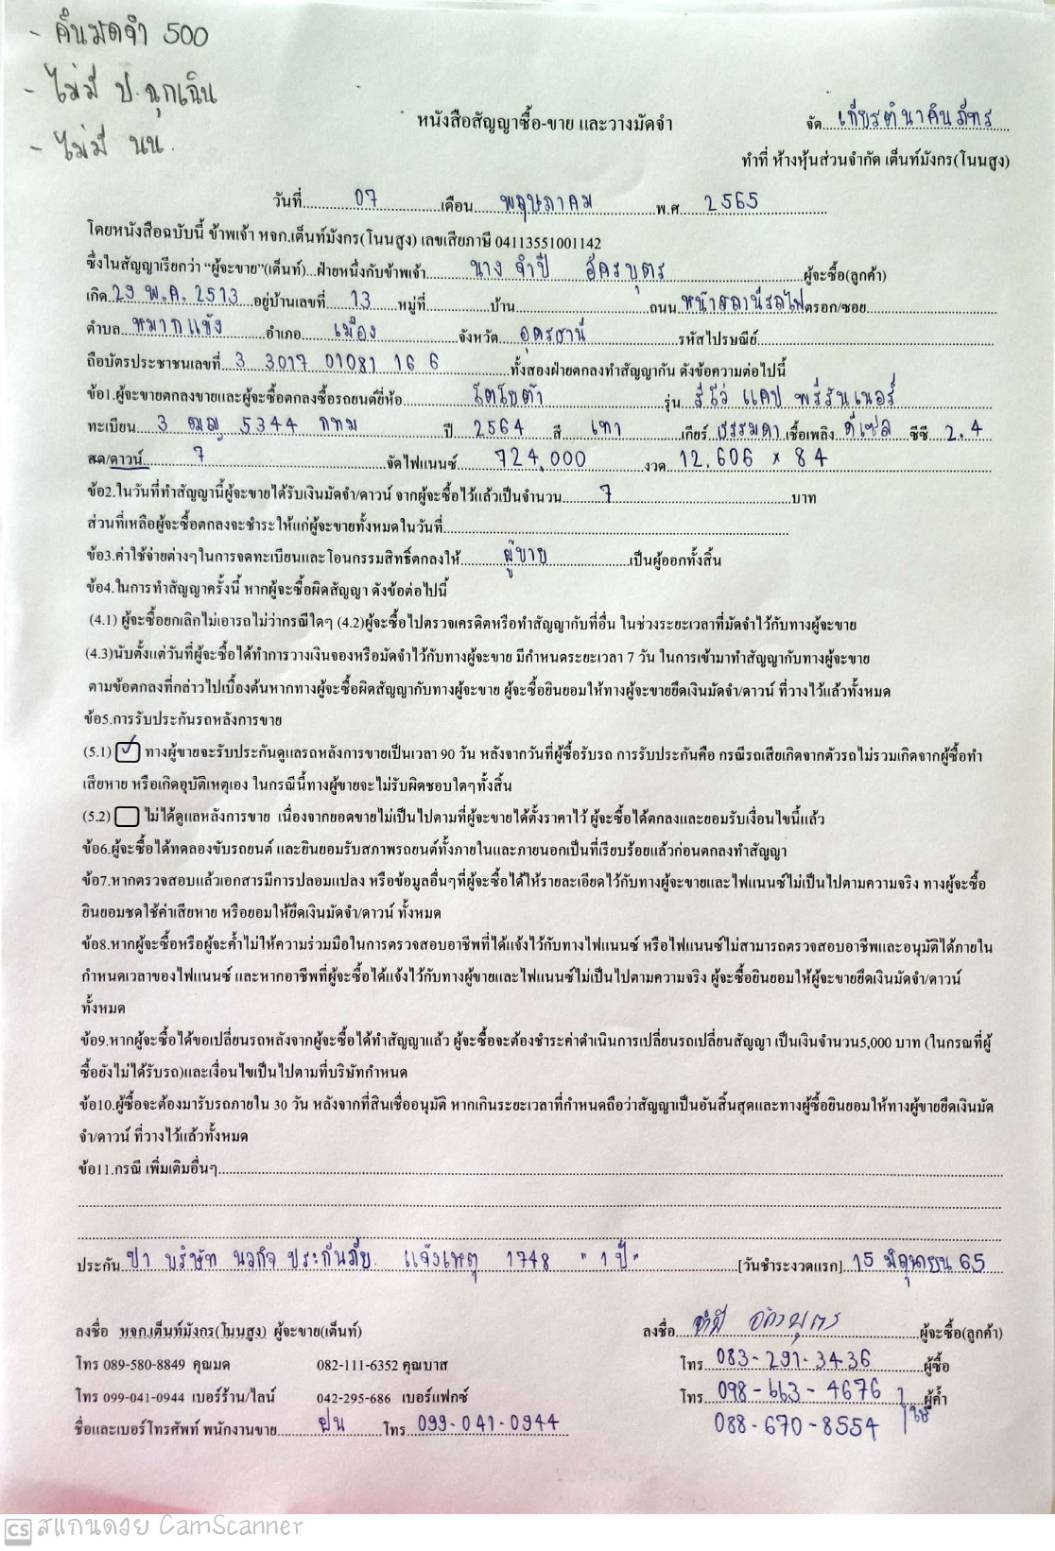 - คืนมดจำ 500
- ไม่มี ป.ฉุกเฉิน
- ไม่มี นน.
หนังสือสัญญาซื้อ-ขาย และวางมัดจำ
จัด เกียรตินาคินภัทร
ทำที่ ห้างหุ้นส่วนจำกัด เต็นท์มังกร(โนนสูง)
วันที่ 07 เดือน พฤษภาคม พ.ศ 2565
โดยหนังสือฉบับนี้ ข้าพเจ้า หจก.เต็นท์มังกร(โนนสูง) เลขเสียภาษี 04113551001142
ซึ่งในสัญญาเรียกว่า "ผู้จะขาย"(เต็นท์)...ฝ่ายหนึ่งกับข้าพเจ้า นาง จำปี อัครบุตร ผู้จะซื้อ(ลูกค้า)
เกิด 29 พ.ค. 2513 อยู่บ้านเลขที่ 13 หมู่ที่ บ้าน ถนน หน้าสถานีรถไฟ ตรอก/ซอย
ตำบล หมากแข้ง อำเภอ เมือง จังหวัด อุดรธานี รหัสไปรษณีย์
ถือบัตรประชาชนเลขที่ 3 3017 01081 16 6 ทั้งสองฝ่ายตกลงทำสัญญากัน ดังข้อความต่อไปนี้
ข้อ1.ผู้จะขายตกลงขายและผู้จะซื้อตกลงซื้อรถยนต์ยี่ห้อ โตโยต้า รุ่น รีโว่ แคป พรีรันเนอร์
ทะเบียน 3 ฒฌ 5344 กทม ปี 2564 สี เทา เกียร์ ธรรมดา เชื้อเพลิง ดีเซล ซีซี 2.4
สด/ดาวน์ 7 จัดไฟแนนซ์ 724,000 งวด 12,606 x 84
ข้อ2.ในวันที่ทำสัญญานี้ผู้จะขายได้รับเงินมัดจำ/ดาวน์ จากผู้จะซื้อไว้แล้วเป็นจำนวน 7 บาท
ส่วนที่เหลือผู้จะซื้อตกลงจะชำระให้แก่ผู้จะขายทั้งหมดในวันที่
ข้อ3.ค่าใช้จ่ายต่างๆในการจดทะเบียนและโอนกรรมสิทธิ์ตกลงให้ ผู้ขาย เป็นผู้ออกทั้งสิ้น
ข้อ4.ในการทำสัญญาครั้งนี้ หากผู้จะซื้อผิดสัญญา ดังข้อต่อไปนี้
(4.1) ผู้จะซื้อยกเลิกไม่เอารถไม่ว่ากรณีใดๆ (4.2)ผู้จะซื้อไปตรวจเครดิตหรือทำสัญญากับที่อื่น ในช่วงระยะเวลาที่มัดจำไว้กับทางผู้จะขาย
(4.3)นับตั้งแต่วันที่ผู้จะซื้อได้ทำการวางเงินจองหรือมัดจำไว้กับทางผู้จะขาย มีกำหนดระยะเวลา 7 วัน ในการเข้ามาทำสัญญากับทางผู้จะขาย
ตามข้อตกลงที่กล่าวไปเบื้องต้นหากทางผู้จะซื้อผิดสัญญากับทางผู้จะขาย ผู้จะซื้อยินยอมให้ทางผู้จะขายยึดเงินมัดจำ/ดาวน์ ที่วางไว้แล้วทั้งหมด
ข้อ5.การรับประกันรถหลังการขาย
(5.1) ✓ ทางผู้ขายจะรับประกันดูแลรถหลังการขายเป็นเวลา 90 วัน หลังจากวันที่ผู้ซื้อรับรถ การรับประกันคือ กรณีรถเสียเกิดจากตัวรถไม่รวมเกิดจากผู้ซื้อทำ
เสียหาย หรือเกิดอุบัติเหตุเอง ในกรณีนี้ทางผู้ขายจะไม่รับผิดชอบใดๆทั้งสิ้น
(5.2) ไม่ได้ดูแลหลังการขาย เนื่องจากยอดขายไม่เป็นไปตามที่ผู้จะขายได้ตั้งราคาไว้ ผู้จะซื้อได้ตกลงและยอมรับเงื่อนไขนี้แล้ว
ข้อ6.ผู้จะซื้อได้ทดลองขับรถยนต์ และยินยอมรับสภาพรถยนต์ทั้งภายในและภายนอกเป็นที่เรียบร้อยแล้วก่อนตกลงทำสัญญา
ข้อ7.หากตรวจสอบแล้วเอกสารมีการปลอมแปลง หรือข้อมูลอื่นๆที่ผู้จะซื้อได้ให้รายละเอียดไว้กับทางผู้จะขายและไฟแนนซ์ไม่เป็นไปตามความจริง ทางผู้จะซื้อ
ยินยอมชดใช้ค่าเสียหาย หรือยอมให้ยึดเงินมัดจำ/ดาวน์ ทั้งหมด
ข้อ8.หากผู้จะซื้อหรือผู้จะค้ำไม่ให้ความร่วมมือในการตรวจสอบอาชีพที่ได้แจ้งไว้กับทางไฟแนนซ์ หรือไฟแนนซ์ไม่สามารถตรวจสอบอาชีพและอนุมัติได้ภายใน
กำหนดเวลาของไฟแนนซ์ และหากอาชีพที่ผู้จะซื้อได้แจ้งไว้กับทางผู้ขายและไฟแนนซ์ไม่เป็นไปตามความจริง ผู้จะซื้อยินยอมให้ผู้จะขายยึดเงินมัดจำ/ดาวน์
ทั้งหมด
ข้อ9.หากผู้จะซื้อได้ขอเปลี่ยนรถหลังจากผู้จะซื้อได้ทำสัญญาแล้ว ผู้จะซื้อจะต้องชำระค่าดำเนินการเปลี่ยนรถเปลี่ยนสัญญา เป็นเงินจำนวน5,000 บาท (ในกรณที่ผู้
ซื้อยังไม่ได้รับรถ)และเงื่อนไขเป็นไปตามที่บริษัทกำหนด
ข้อ10.ผู้ซื้อจะต้องมารับรถภายใน 30 วัน หลังจากที่สินเชื่ออนุมัติ หากเกินระยะเวลาที่กำหนดถือว่าสัญญาเป็นอันสิ้นสุดและทางผู้ซื้อยินยอมให้ทางผู้ขายยึดเงินมัด
จำ/ดาวน์ ที่วางไว้แล้วทั้งหมด
ข้อ11.กรณี เพิ่มเติมอื่นๆ
ประกัน ป1 บริษัท นวกิจ ประกันภัย แจ้งเหตุ 1748 "1 ปี" [วันชำระงวดแรก] 15 มิถุนายน 65
ลงชื่อ หจก.เต็นท์มังกร(โนนสูง) ผู้จะขาย(เต็นท์) ลงชื่อ จำปี อัครบุตร ผู้จะซื้อ(ลูกค้า)
โทร 089-580-8849 คุณมด 082-111-6352 คุณบาส โทร 083-291-3436 ผู้ซื้อ
โทร 099-041-0944 เบอร์ร้าน/ไลน์ 042-295-686 เบอร์แฟกซ์ โทร 098-663-4676 ผู้ค้ำ
ชื่อและเบอร์โทรศัพท์ พนักงานขาย ฝน โทร 099-041-0944 088-670-8554 ใช้
CS สแกนด้วย CamScanner